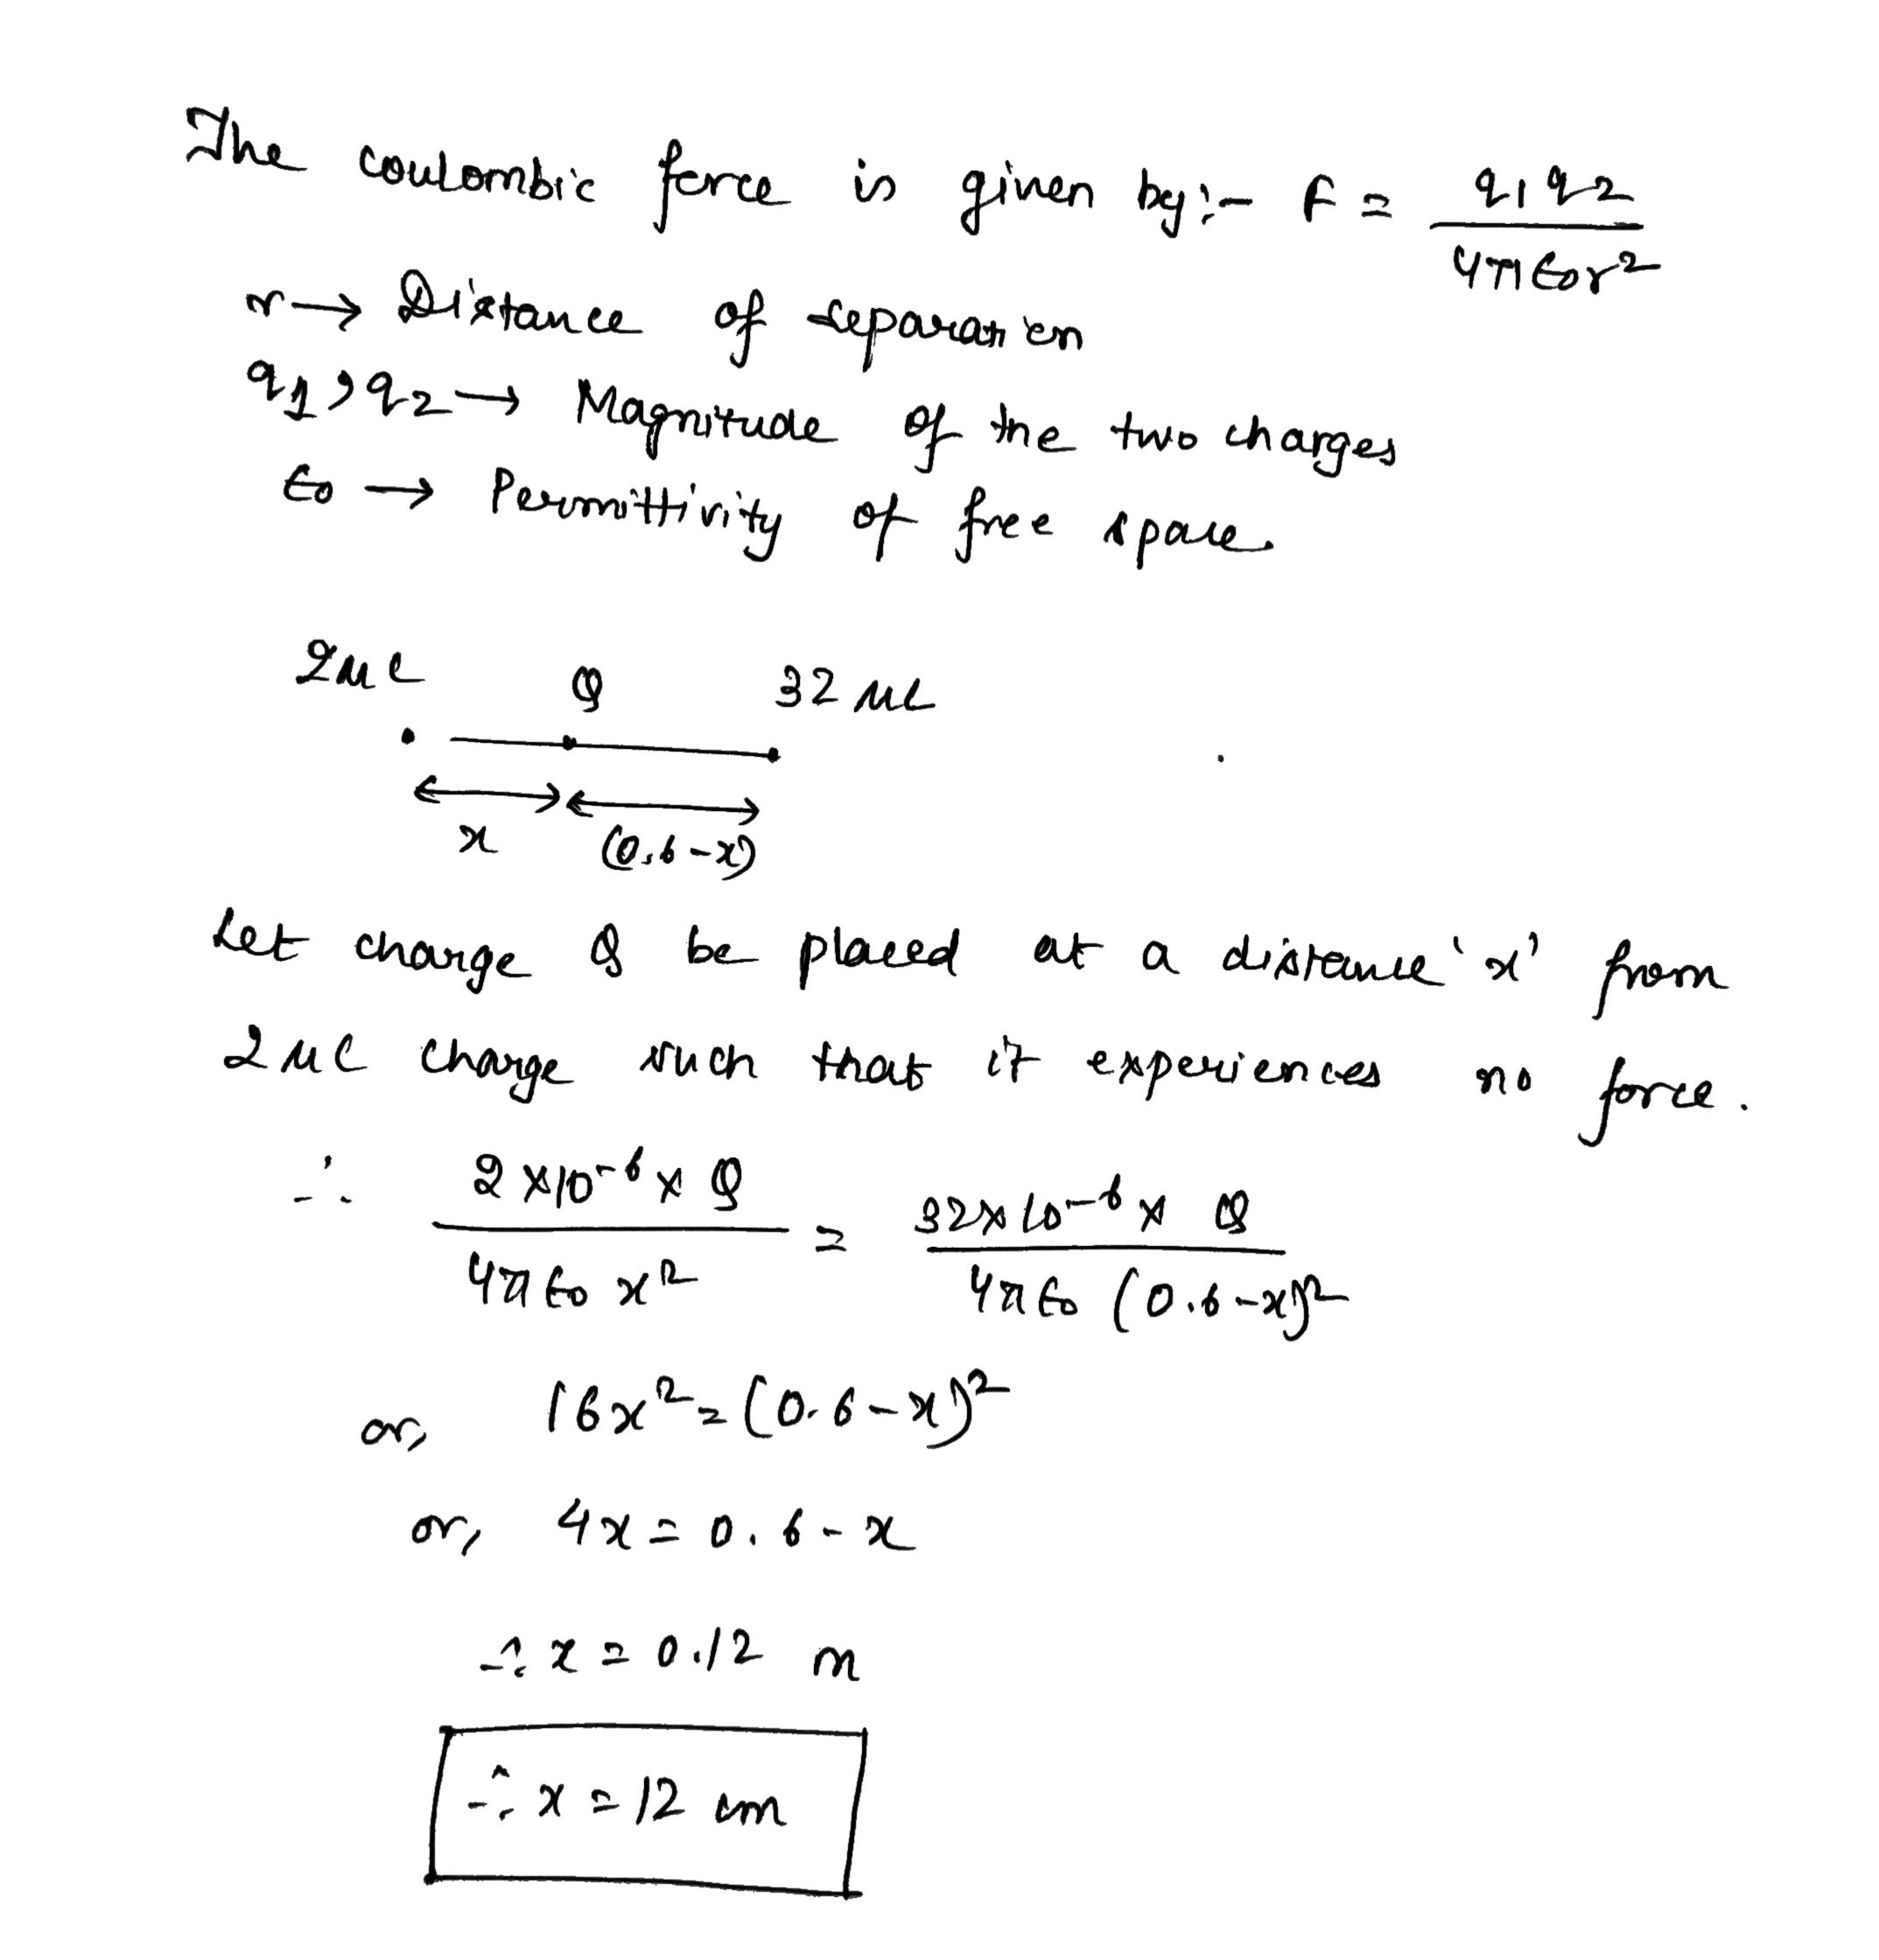 The coulombic force is given by:- F = q1q2 / 4πε0r²
r → Distance of separation
q1, q2 → Magnitude of the two charges
ε0 → Permittivity of free space.
2μC Q 32μC
x (0.6-x)
Let charge Q be placed at a distance 'x' from
2μC charge such that it experiences no force.
∴ 2×10⁻⁶×Q / 4πε0 x² = 32×10⁻⁶×Q / 4πε0 (0.6-x)²
or, 16x² = (0.6-x)²
or, 4x = 0.6-x
∴ x = 0.12 m
∴ x = 12 cm